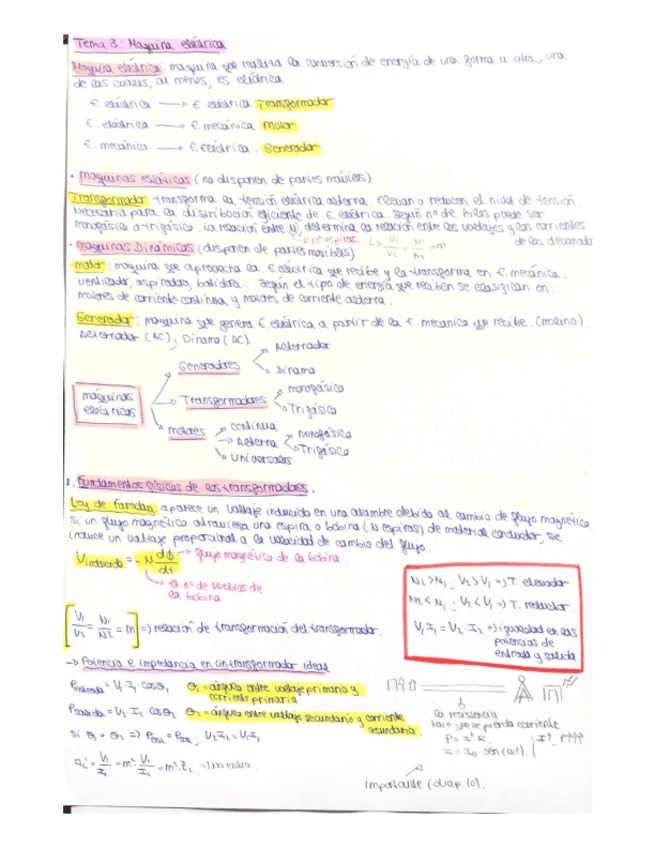 Tema 3: Maquina eléctrica
Maquina eléctrica: maquina que realiza la conversión de energía de una forma a otra, una
de las cuales, al menos, es eléctrica
E. eléctrica → E. eléctrica Transformador
E. eléctrica → E. mecánica Motor
E. mecánica → E. Eléctrica: Generador
• Maquinas estáticas (no disponen de partes móviles)
Transformador transforma la tensión eléctrica alterna. Elevan o reducen el nivel de tensión.
Necesaria para la distribución eficiente de E. eléctrica. Según nº de hilos puede ser
monofásico o trifásico. La relación entre N, determina la relación entre los voltajes y las corrientes
de los devanados
nº espiras. V1/V2 = N1/N2 = m.
• Maquinas Dinámicas (disponen de partes movibles)
motor: maquina que aprovecha la E. eléctrica que recibe y la transforma en E. mecánica.
ventilador, aspiradora, batidora... Según el tipo de energía que reciben se clasifican en:
motores de corriente continua y motores de corriente alterna.
Generador: maquina que genera E. eléctrica a partir de la E. mecanica que recibe. (molino).
Alternador (AC), Dinamo (DC).
máquinas eléctricas
Generadores
Alternador
Dinamo
Transformadores
monofásico
Trifásico
motores
continua
Alterna
monofásica
Trifásica
Universales
1. Fundamentos físicos de los transformadores.
Ley de Faraday: aparece un voltaje inducido en una alambre debido al cambio de flujo magnético.
Si un flujo magnético atraviesa una espira o bobina (N espiras) de material conductor, se
induce un voltaje proporcional a la velocidad de cambio del flujo.
Vinducida = - N dϕ/dt → flujo magnético de la bobina.
el nº de vueltas de
la bobina
N2 > N1; V2 > V1 => T. elevador
N2 < N1; V2 < V1 => T. reductor.
V1 I1 = V2 · I2 => igualdad en las
potencias de
entrada y salida
[V1/V2 = N1/N2 = m] => relación de transformación del transformador.
→ Potencia e impedancia en un transformador ideal
Pentrada = V1 I1 cosθ1 θ1 = ángulos entre voltaje primario y
corriente primaria
Psalida = V2 · I2 · cosθ2 θ2 = ángulos entre voltaje secundario y corriente
secundaria.
si θ1 = θ2 => Pent = Psal, V2 I2 = V1 I1
= V1/I1 = m² · V2/I2 = m² · Z2 => No entra.
la resistencia
hace que se pierda corriente
P = I² · R.
I = I0 · sen(ωt).
I↑, P↑↑↑
importante (diap. 10).